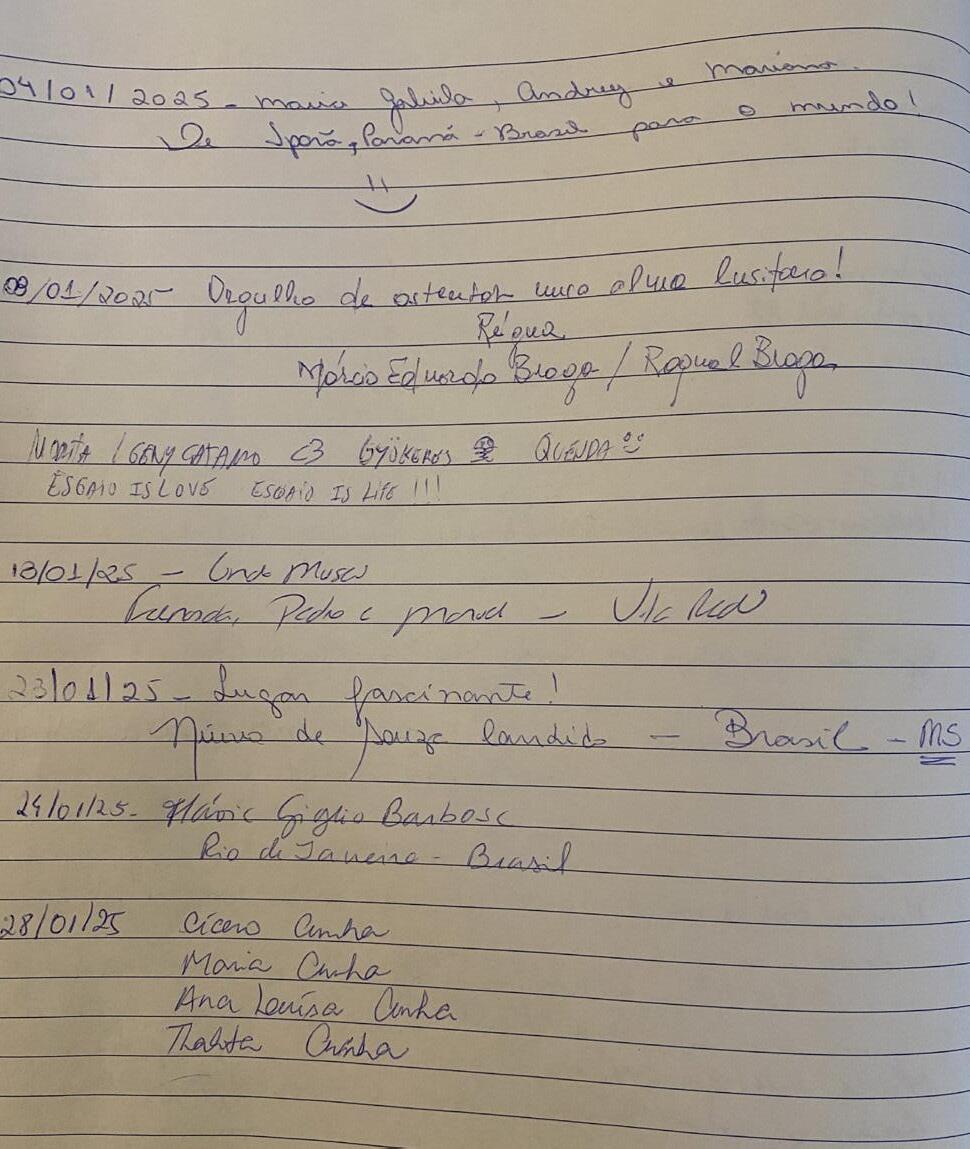 04/01/2025 - Maria Gabriela, Andrey e Mariana.
De Iporã, Paraná - Brasil para o mundo!
09/01/2025 Orgulho de ostentar uma alma lusitana!
Régua
Márcio Eduardo Braga / Raquel Braga
MORITA / GENY CATAMO <3 GYÖKERES QUENDA
ESGAIO IS LOVE ESGAIO IS LIFE !!!
13/01/25 -
Fernanda, Pedro e - Vila Real
23/01/25 - Lugar fascinante!
de Souza Candido - Brasil - MS
24/01/25 - Flávia Giglio Barbosa
Rio de Janeiro - Brasil
28/01/25 Cícero Cunha
Maria Cunha
Ana Louísa Cunha
Thalita Cunha